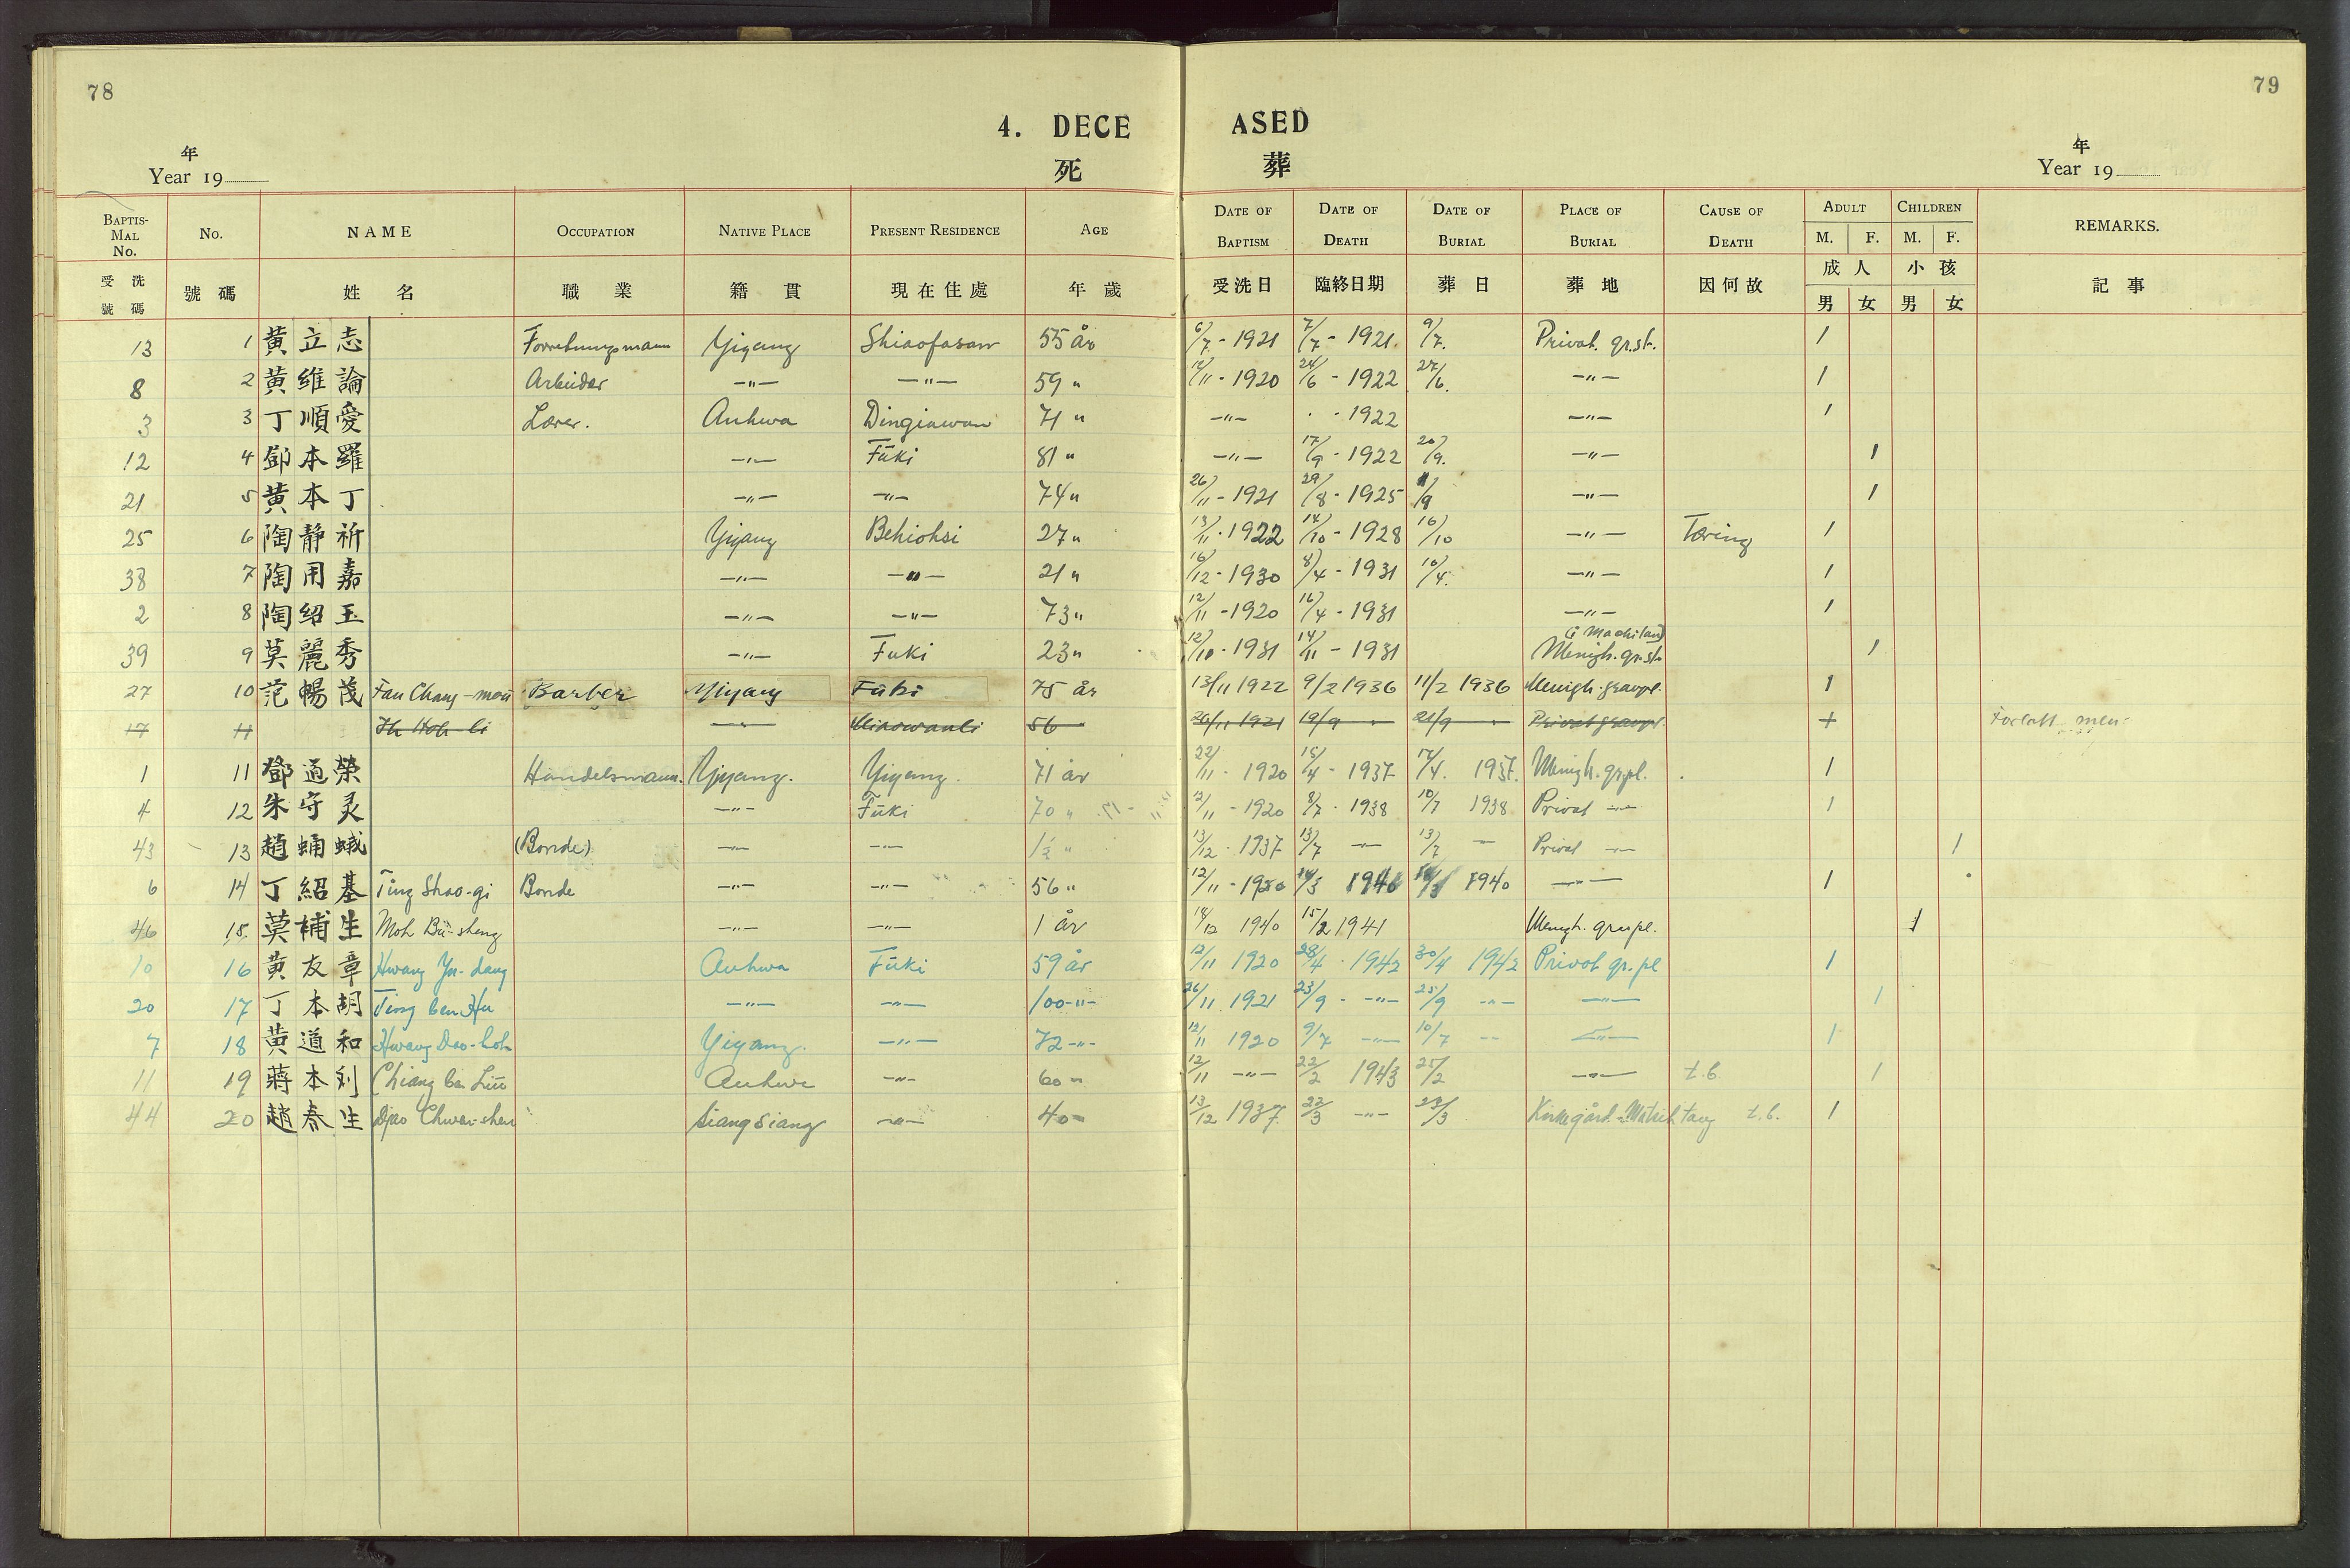 78
79
4. DECEASED
死 葬
年
Year 19
年
Year 19
BAPTISMAL No. No. NAME OCCUPATION NATIVE PLACE PRESENT RESIDENCE AGE DATE OF BAPTISM DATE OF DEATH DATE OF BURIAL PLACE OF BURIAL CAUSE OF DEATH ADULT M. F. CHILDREN M. F. REMARKS.
受洗號碼 號碼 姓名 職業 籍貫 現在住處 年歲 受洗日 臨終日期 葬日 葬地 因何故 成人 男 女 小孩 男 女 記事
13 1 黃立志 Forretningsmann Yiyang Shiaofasan 55 år 6/7 - 1921 7/7 - 1921 9/7. Privat. gr.st. 1
8 2 黃維論 Arbeider -"- -"- 59 " 12/11 - 1920 24/6 - 1922 27/6. -"- 1
3 3 丁順愛 Lærer. Anhwa Dingiawan 71 " -"- - - 1922 -"- 1
12 4 鄧本羅 -"- Fūki 81 " -"- 17/9 - 1922 20/9. -"- 1
21 5 黃本丁 -"- -"- 74 " 26/11 - 1921 29/8 - 1925 1/9 -"- 1
25 6 陶靜祈 Yiyang Behiohsi 27 " 13/11 - 1922 14/10 - 1928 16/10 -"- Tæring 1
38 7 陶用嘉 -"- -"- 21 " 16/12 - 1930 8/4 - 1931 10/4. -"- 1
2 8 陶紹玉 -"- -"- 73 " 12/11 - 1920 16/4 - 1931 -"- 1
39 9 莫麗秀 -"- Fuki 23 " 12/10 - 1931 14/11 - 1931 Menigh. gr.st. 1
27 10 范暢茂 Fan Chang-mou Barber Yiyang Fūki 75 år 13/11 1922 9/2 1936 11/2 1936 Menigh. gravpl. 1
17 11 Ih Hoh-li -"- Miaowanli 56 26/11 1921 19/9 " 21/9 " Privat gravpl. 1
1 11 鄧通榮 Handelsmann. Yiyang. Yiyang. 71 år 22/11 - 1920 15/4 - 1937 17/4. 1937. Menigh. gr.pl. 1
4 12 朱守灵 -"- Fūki 70 " 12/11 - 1920 8/7 - 1938 10/7 1938 Privat -"- 1
43 13 趙蛹蛾 (Bonde) -"- -"- 1½ " 13/12 - 1937 13/7 -"- 13/7 -"- Privat -"- 1
6 14 丁紹基 Ting Shao-gi Bonde -"- -"- 56 " 12/11 - 1920 1940 1940 -"- 1
46 15. 莫補生 Moh Bü-sheng -"- -"- 1 år 14/12 1940 15/2 1941 Menigh. gr.pl. 1
10 16 黃友章 Hwang Yu-dang Anhwa Fūki 59 år 12/11 1920 28/4 - 1942 30/4 1942 Privat gr.pl 1
20 17 丁本胡 Ting ben Hu -"- -"- 100 -"- 26/11 1921 23/9 - -"- 25/9 -"- -"- 1
7 18 黃道和 Hwang Dao-hoh Yiyang. -"- 72 -"- 12/11 1920 9/7 -"- 10/7 -"- -"- 1
11 19 蔣本刘 Chiang ben Liu Anhwa -"- 60 " 12/11 -"- 22/2 1943 25/2 -"- t.b. 1
44 20 趙春生 Djao Chwen-shen Siangsiang -"- 40 - 13/12 1937 22/3 -"- 23/3 Kirkegård t.b. 1